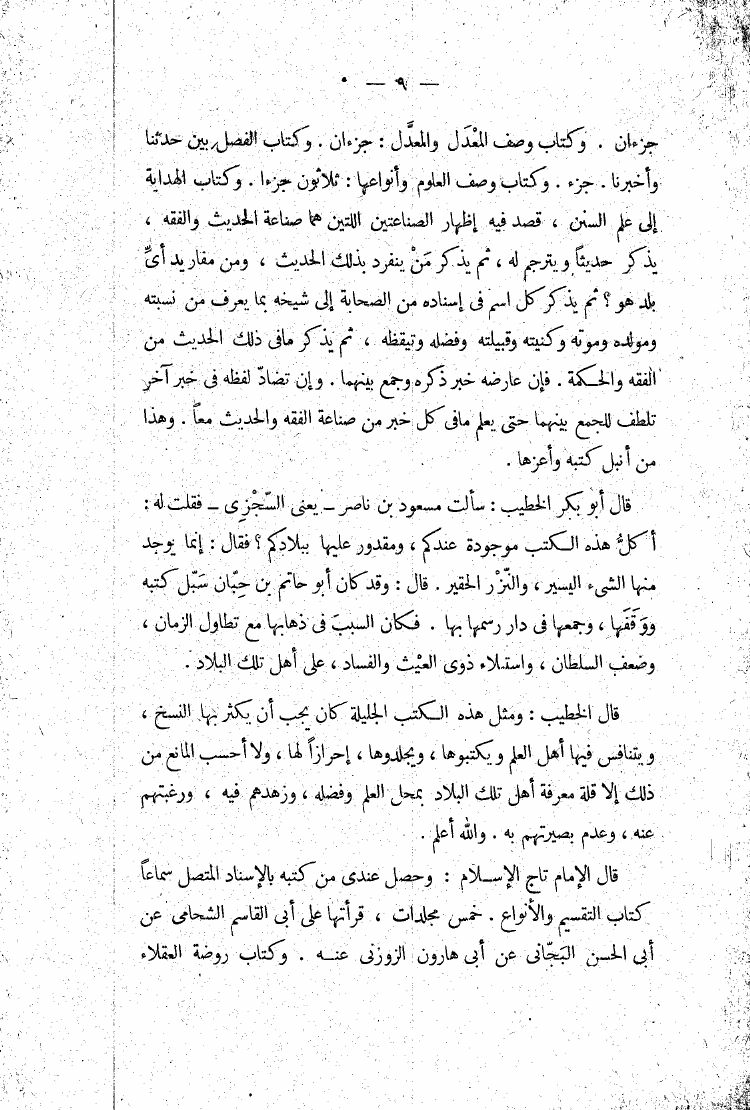 — ٩ —
جزءان . وكتاب وصف المعْدَل والمعدَّل : جزءان . وكتاب الفصل بين حدثنا
وأخبرنا . جزء . وكتاب وصف العلوم وأنواعها : ثلاثون جزءا . وكتاب الهداية
إلى علم السنن ، قصد فيه إظهار الصناعتين اللتين هما صناعة الحديث والفقه ،
يذكر حديثاً ويترجم له ، ثم يذكر مَنْ ينفرد بذلك الحديث ، ومن مفاريد أىِّ
بلد هو ؟ ثم يذكر كل اسم فى إسناده من الصحابة إلى شيخه بما يعرف من نسبته
ومولده وموته وكنيته وقبيلته وفضله وتيقظه ، ثم يذكر مافى ذلك الحديث من
الفقه والحكمة . فإن عارضه خبر ذكره وجمع بينهما . وإن تضادّ لفظه فى خبر آخر
تلطف للجمع بينهما حتى يعلم مافى كل خبر من صناعة الفقه والحديث معاً . وهذا
من أنبل كتبه وأعزها .
قال أبو بكر الخطيب : سألت مسعود بن ناصر ــ يعنى السّجْزِى ــ فقلت له :
أكلُّ هذه الكتب موجودة عندكم ، ومقدور عليها ببلادكم ؟ فقال : إنما يوجد
منها الشىء اليسير ، والنَّزْر الحقير . قال : وقد كان أبو حاتم بن حِبّان سَبّل كتبه
ووَقَفَها ، وجمعها فى دار رسمها بها . فكان السببَ فى ذهابها مع تطاول الزمان ،
وضعف السلطان ، واستيلاء ذوى العيْث والفساد ، على أهل تلك البلاد .
قال الخطيب : ومثل هذه الكتب الجليلة كان يجب أن يكثر بها النسخ ،
ويتنافس فيها أهل العلم ويكتبوها ، ويجلدوها ، إحرازاً لها ، ولا أحسب المانع من
ذلك إلا قلة معرفة أهل تلك البلاد بمحل العلم وفضله ، وزهدهم فيه ، ورغبتهم
عنه ، وعدم بصيرتهم به . والله أعلم .
قال الإمام تاج الإسلام : وحصل عندى من كتبه بالإسناد المتصل سماعاً
كتاب التقسيم والأنواع . خمس مجلدات ، قرأتها على أبى القاسم الشحامى عن
أبى الحسن البَجّانى عن أبى هارون الزوزنى عنه . وكتاب روضة العقلاء